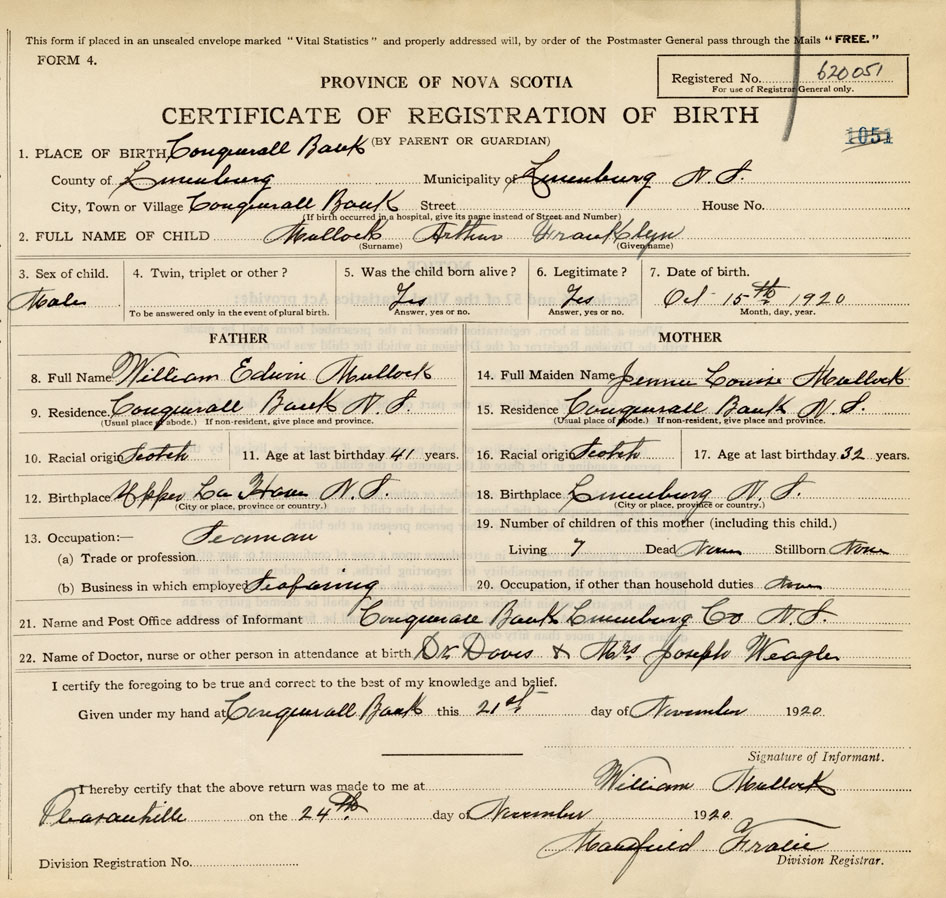 This form if placed in an unsealed envelope marked "Vital Statistics" and properly addressed will, by order of the Postmaster General pass through the Mails "FREE."
FORM 4.
PROVINCE OF NOVA SCOTIA
Registered No. 620051
For use of Registrar General only.
CERTIFICATE OF REGISTRATION OF BIRTH
(BY PARENT OR GUARDIAN)
1051
1. PLACE OF BIRTH Conquerall Bank
County of Lunenburg Municipality of Lunenburg N.S.
City, Town or Village Conquerall Bank Street House No.
(If birth occurred in a hospital, give its name instead of Street and Number)
2. FULL NAME OF CHILD Mullock Arthur Franklyn
(Surname) (Given name)
3. Sex of child. 4. Twin, triplet or other? 5. Was the child born alive? 6. Legitimate? 7. Date of birth.
Male Yes Yes Oct 15th 1920
To be answered only in the event of plural birth. Answer, yes or no. Answer, yes or no. Month, day, year.
FATHER MOTHER
8. Full Name William Edwin Mullock 14. Full Maiden Name Jennie Louise Mullock
9. Residence. Conquerall Bank N.S. 15. Residence Conquerall Bank N.S.
(Usual place of abode.) If non-resident, give place and province. (Usual place of abode.) If non-resident, give place and province.
10. Racial origin Scotch 11. Age at last birthday 41 years. 16. Racial origin Scotch 17. Age at last birthday 32 years.
12. Birthplace Upper La Have N.S. 18. Birthplace Lunenburg N.S.
(City or place, province or country.) (City or place, province or country.)
13. Occupation:— Seaman 19. Number of children of this mother (including this child.)
(a) Trade or profession Living 7 Dead None Stillborn None
(b) Business in which employed Seafaring 20. Occupation, if other than household duties None
21. Name and Post Office address of Informant Conquerall Bank Lunenburg Co N.S.
22. Name of Doctor, nurse or other person in attendance at birth Dr Davis & Mrs Joseph Weagle
I certify the foregoing to be true and correct to the best of my knowledge and belief.
Given under my hand at Conquerall Bank this 21st day of November 1920
Signature of Informant.
I hereby certify that the above return was made to me at William Mullock
Pleasantville on the 24th day of November 1920
Mansfield
Division Registration No. Division Registrar.